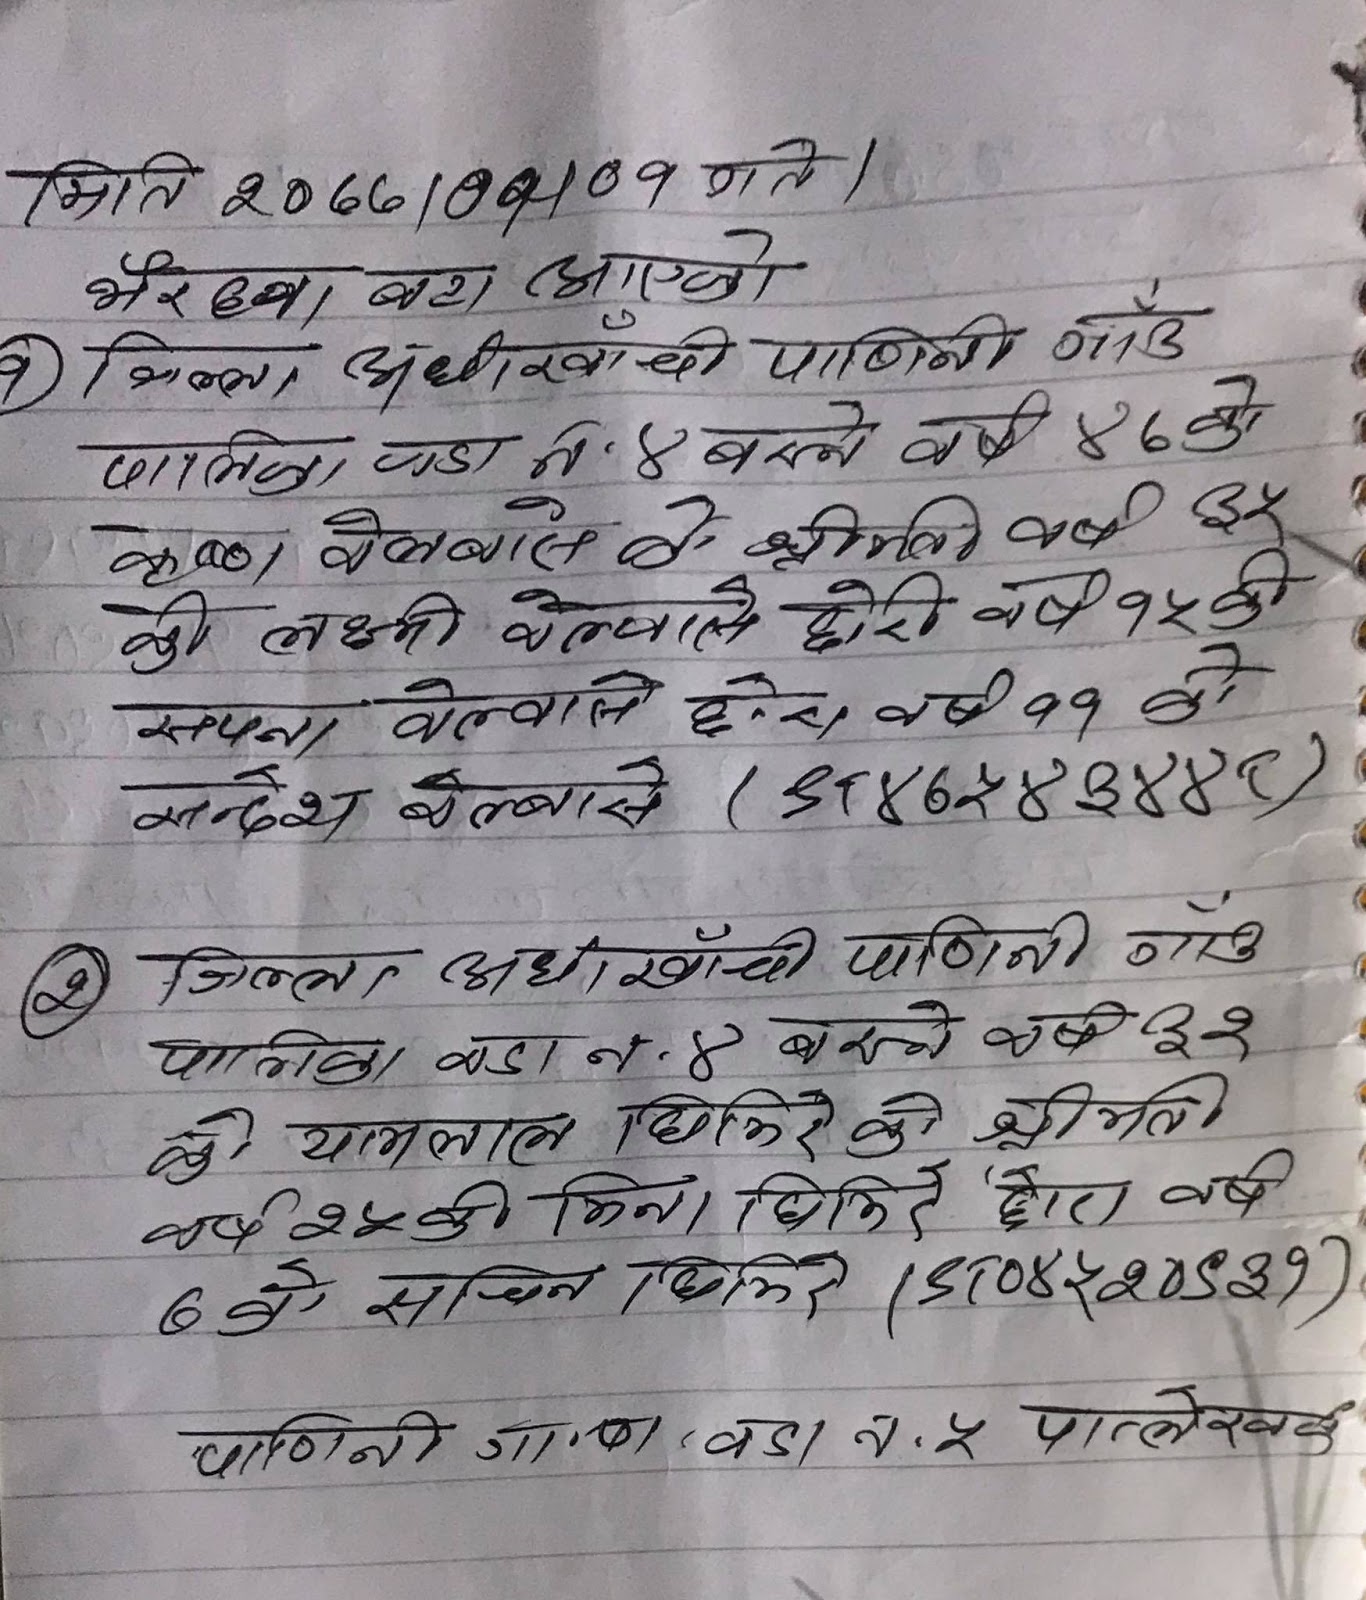 मिति २०७७/०१/०१ गते।
भैरहवा बाट आएको
१) जिल्ला अर्घाखाँची पाणिनी गाँउ
पालिका वडा नं. ४ बस्ने वर्ष ४७ को
कृष्ण वेलबासे को श्रीमती वर्ष ३५
की लक्ष्मी वेल्वासे छोरी वर्ष १५ की
सपना वेल्वासे छोरा वर्ष ११ को
सन्देश वेल्बासे (९८४७५४३४४८)
२) जिल्ला अर्घाखाँची पाणिनी गाँउ
पालिका वडा नं. ४ बस्ने वर्ष ३२
को यामलाल घिमिरे को श्रीमती
वर्ष २५ की मिना घिमिरे छोरा वर्ष
७ को सचिन घिमिरे (९८०४५२०९३१)
पाणिनी गा.पा. वडा नं. ५ पात्लेखर्क